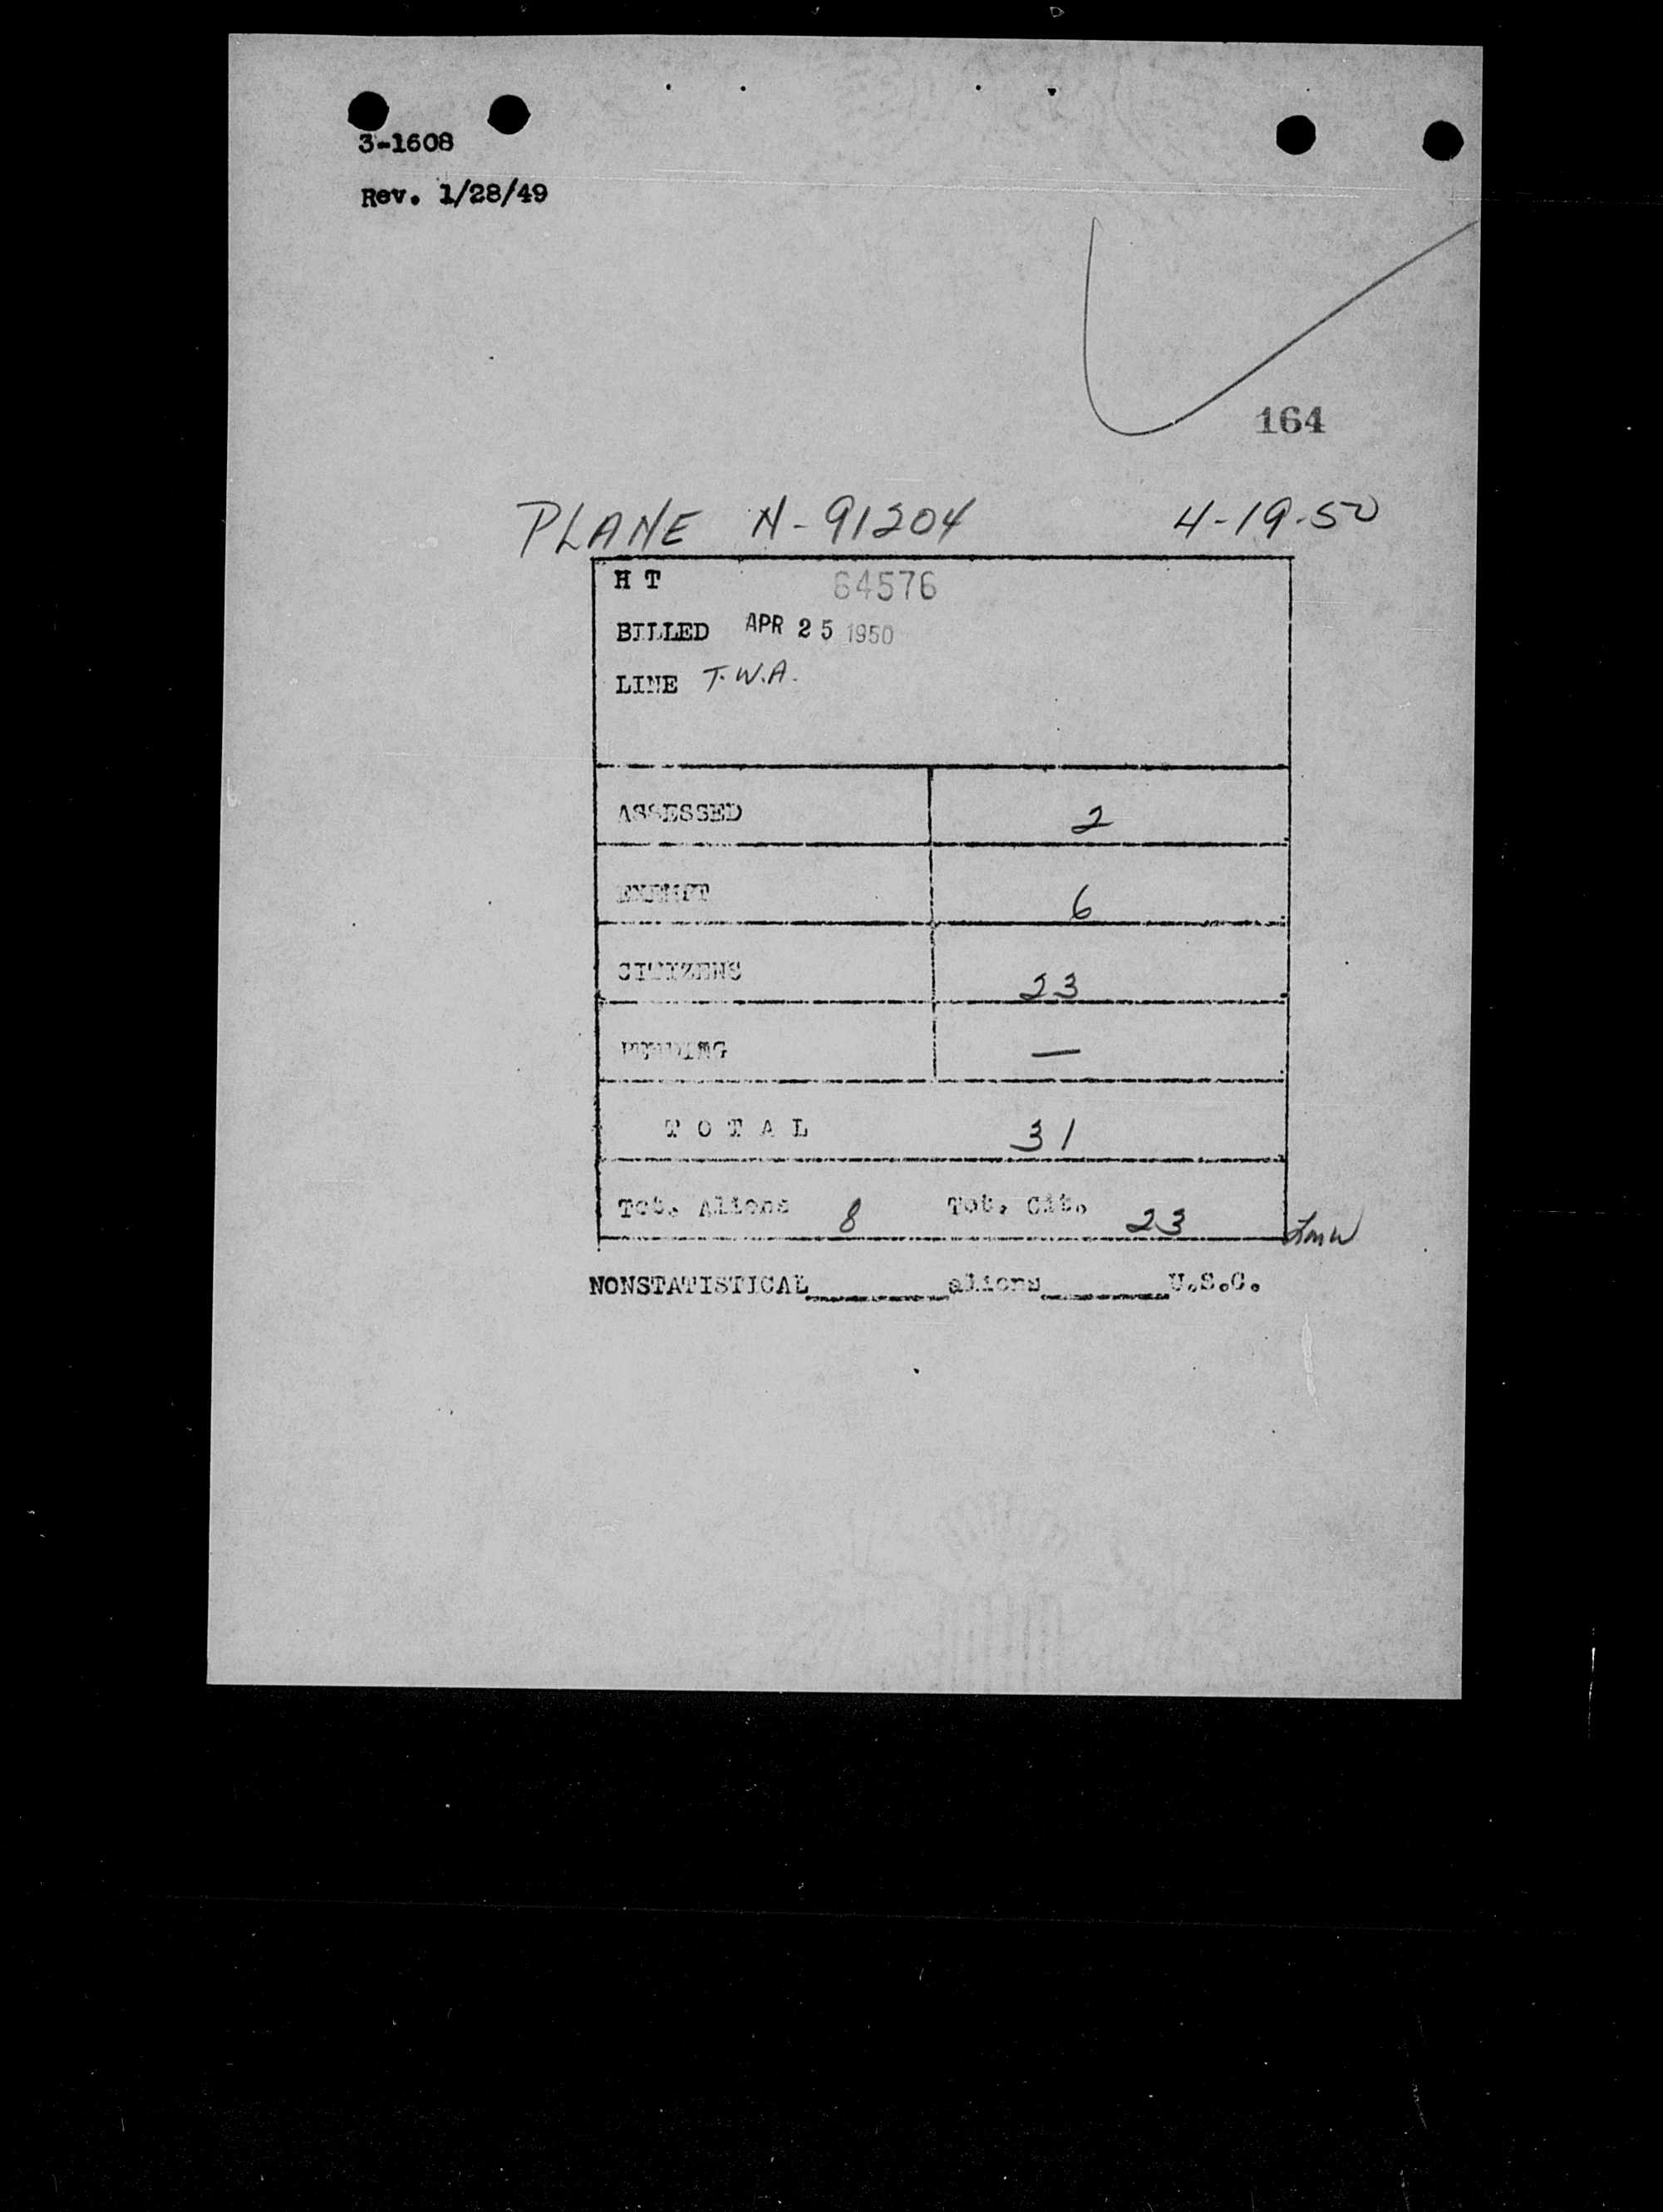 3-1608
Rev. 1/28/49
164
PLANE N-91204 4-19-50
H T 64576
BILLED APR 25 1950
LINE T.W.A.
ASSESSED 2
EXEMPT 6
CITIZENS 23
PENDING —
T O T A L 31
Tot. Aliens 8 Tot. Cit. 23
NONSTATISTICAL________aliens________U.S.C.